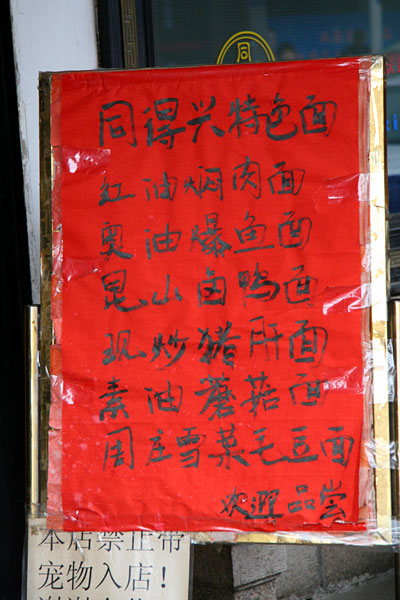 同
同得兴特色面
红油焖肉面
奥油爆鱼面
昆山卤鸭面
现炒猪肝面
素油蘑菇面
周庄雪菜毛豆面
欢迎品尝
本店禁止带
宠物入店！